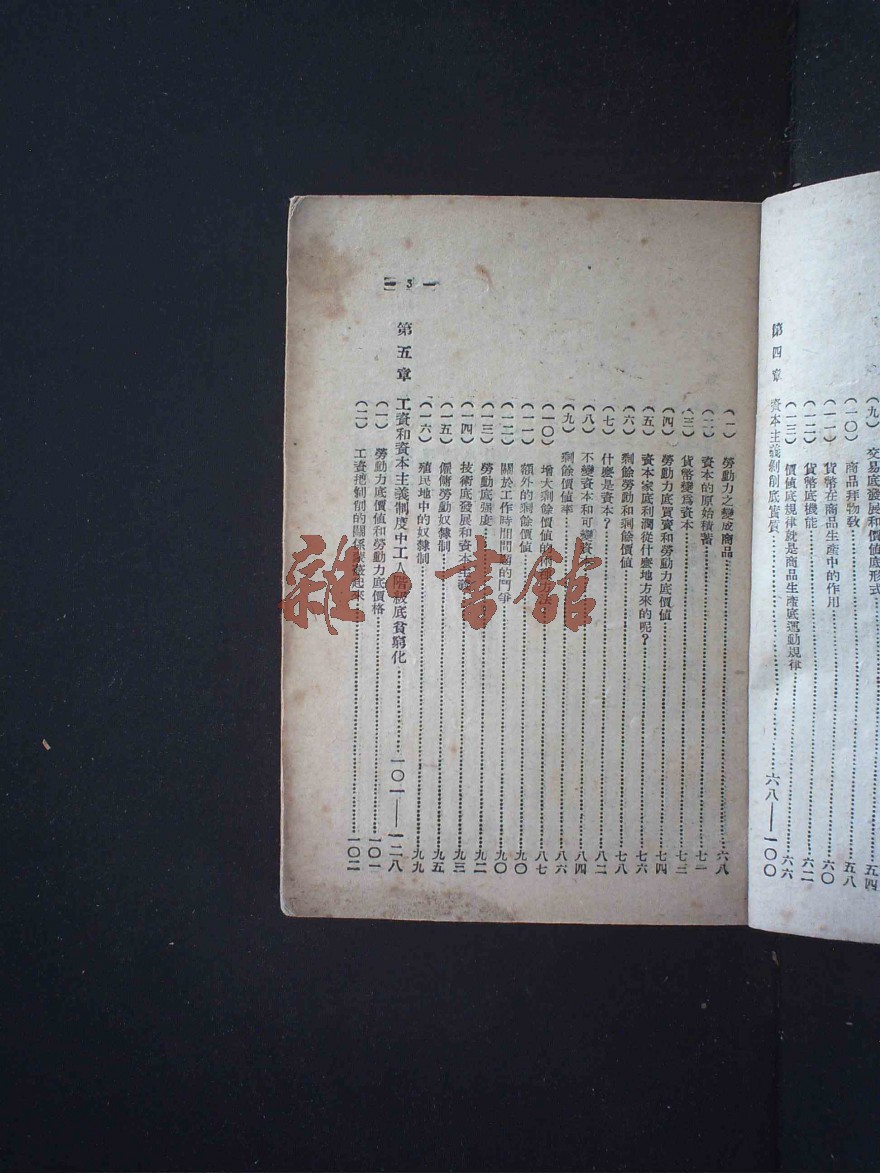 (九) 交易底發展和價值底形式……五四
(一〇) 商品拜物教……五八
(一一) 貨幣在商品生產中的作用……六〇
(一二) 貨幣底機能……六二
(一三) 價值底規律就是商品生產底運動規律……六六
第四章 資本主義剝削底實質……六八——一〇〇
(一) 勞動力之變成商品……六八
(二) 資本的原始積蓄……七一
(三) 貨幣變爲資本……七三
(四) 勞動力底買賣和勞動力底價值……七四
(五) 資本家底利潤從什麼地方來的呢?……七六
(六) 剩餘勞動和剩餘價值……七八
(七) 什麼是資本?……八二
(八) 不變資本和可變資本……八四
(九) 剩餘價值率……八六
(一〇) 增大剩餘價值的兩種方法……八七
(一一) 額外的剩餘價值……九〇
(一二) 關於工作時間問題的鬥爭……九〇
(一三) 勞動底强度……九二
(一四) 技術底發展和資本主義……九三
(一五) 僱傭勞動奴隸制……九五
(一六) 殖民地中的奴隸制……九九
第五章 工資和資本主義制度中工人階級底貧窮化……一〇一——一二八
(一) 勞動力底價值和勞動力底價格……一〇一
(二) 工資把剝削的關係掩蓋起來……一〇二
— 3 —
雜·書館